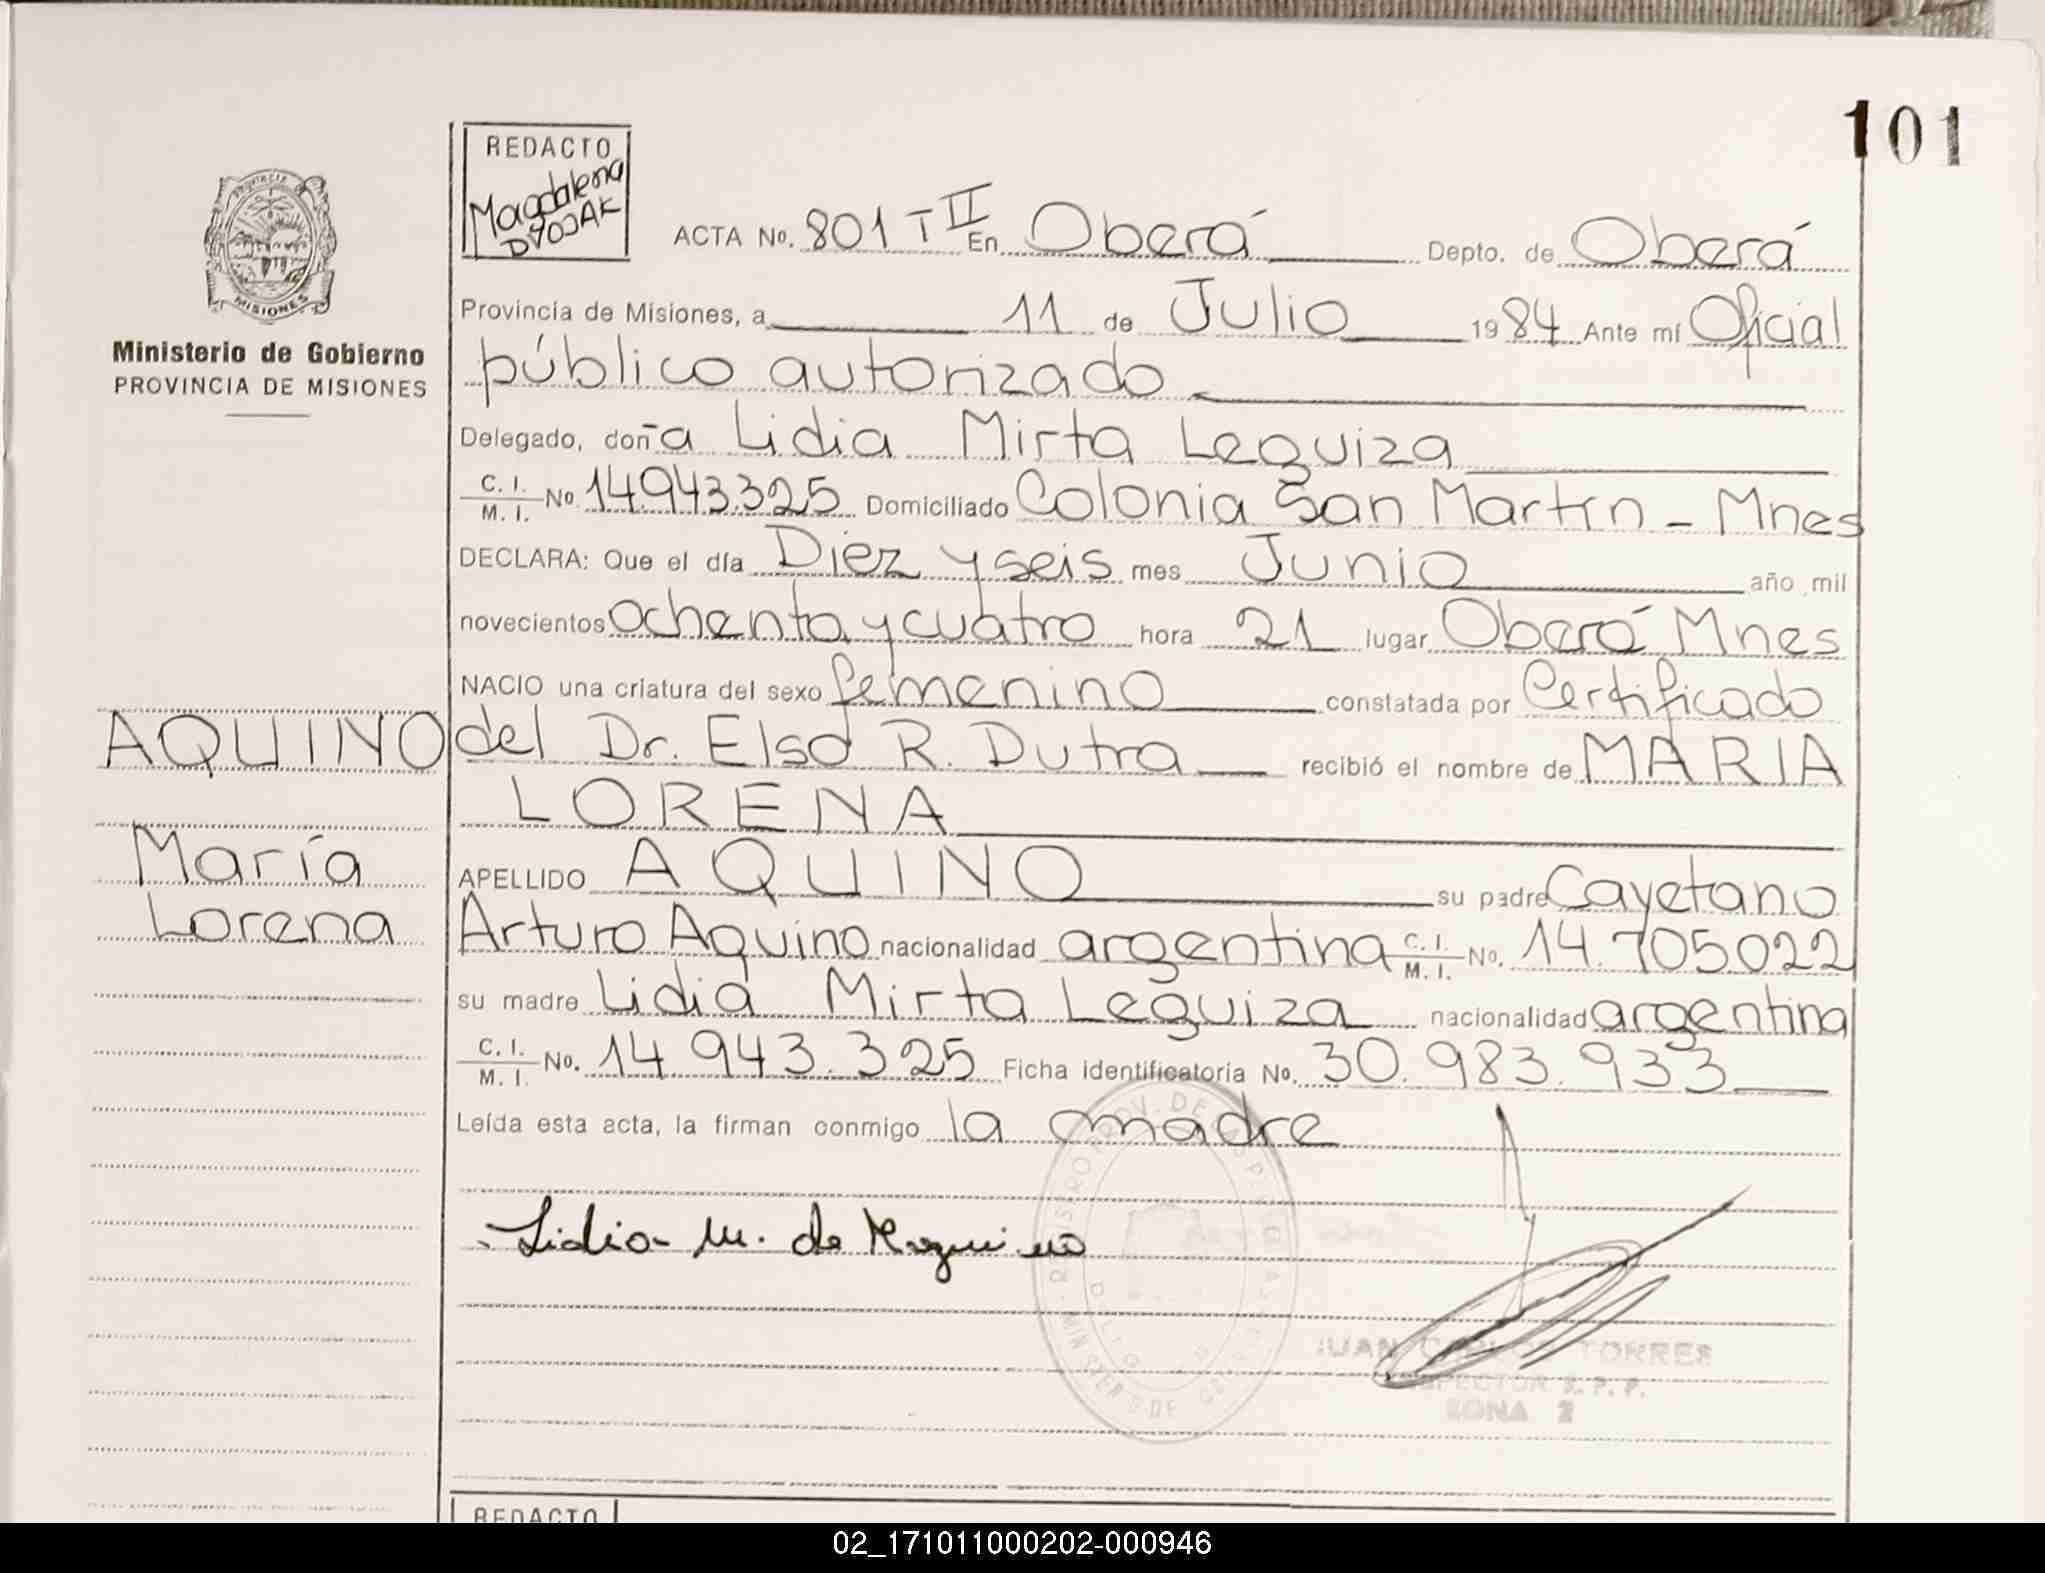 101
REDACTO
Magdalena
DYOJAK
ACTA No. 801 T II En Oberá Depto. de Oberá
MISIONES
Ministerio de Gobierno
PROVINCIA DE MISIONES
Provincia de Misiones, a 11 de Julio 1984 Ante mí Oficial
público autorizado
Delegado, doña Lidia Mirta Leguiza
C. I. / M. I. No. 14.943.325 Domiciliado Colonia San Martín - Mnes
DECLARA: Que el día Diez y seis mes Junio año mil
novecientos ochenta y cuatro hora 21 lugar Oberá Mnes
NACIO una criatura del sexo femenino constatada por Certificado
del Dr. Elso R. Dutra recibió el nombre de MARIA
LORENA
APELLIDO AQUINO su padre Cayetano
Arturo Aquino nacionalidad argentina C. I. / M. I. No. 14.705.022
su madre Lidia Mirta Leguiza nacionalidad argentina
C. I. / M. I. No. 14.943.325 Ficha identificatoria No. 30.983.933
Leída esta acta, la firman conmigo la madre
AQUINO
María
Lorena
Lidia M. de Aquino
JUAN CARLOS TORRES
INSPECTOR R. P. P.
ZONA 2
REDACTO
02_171011000202-000946